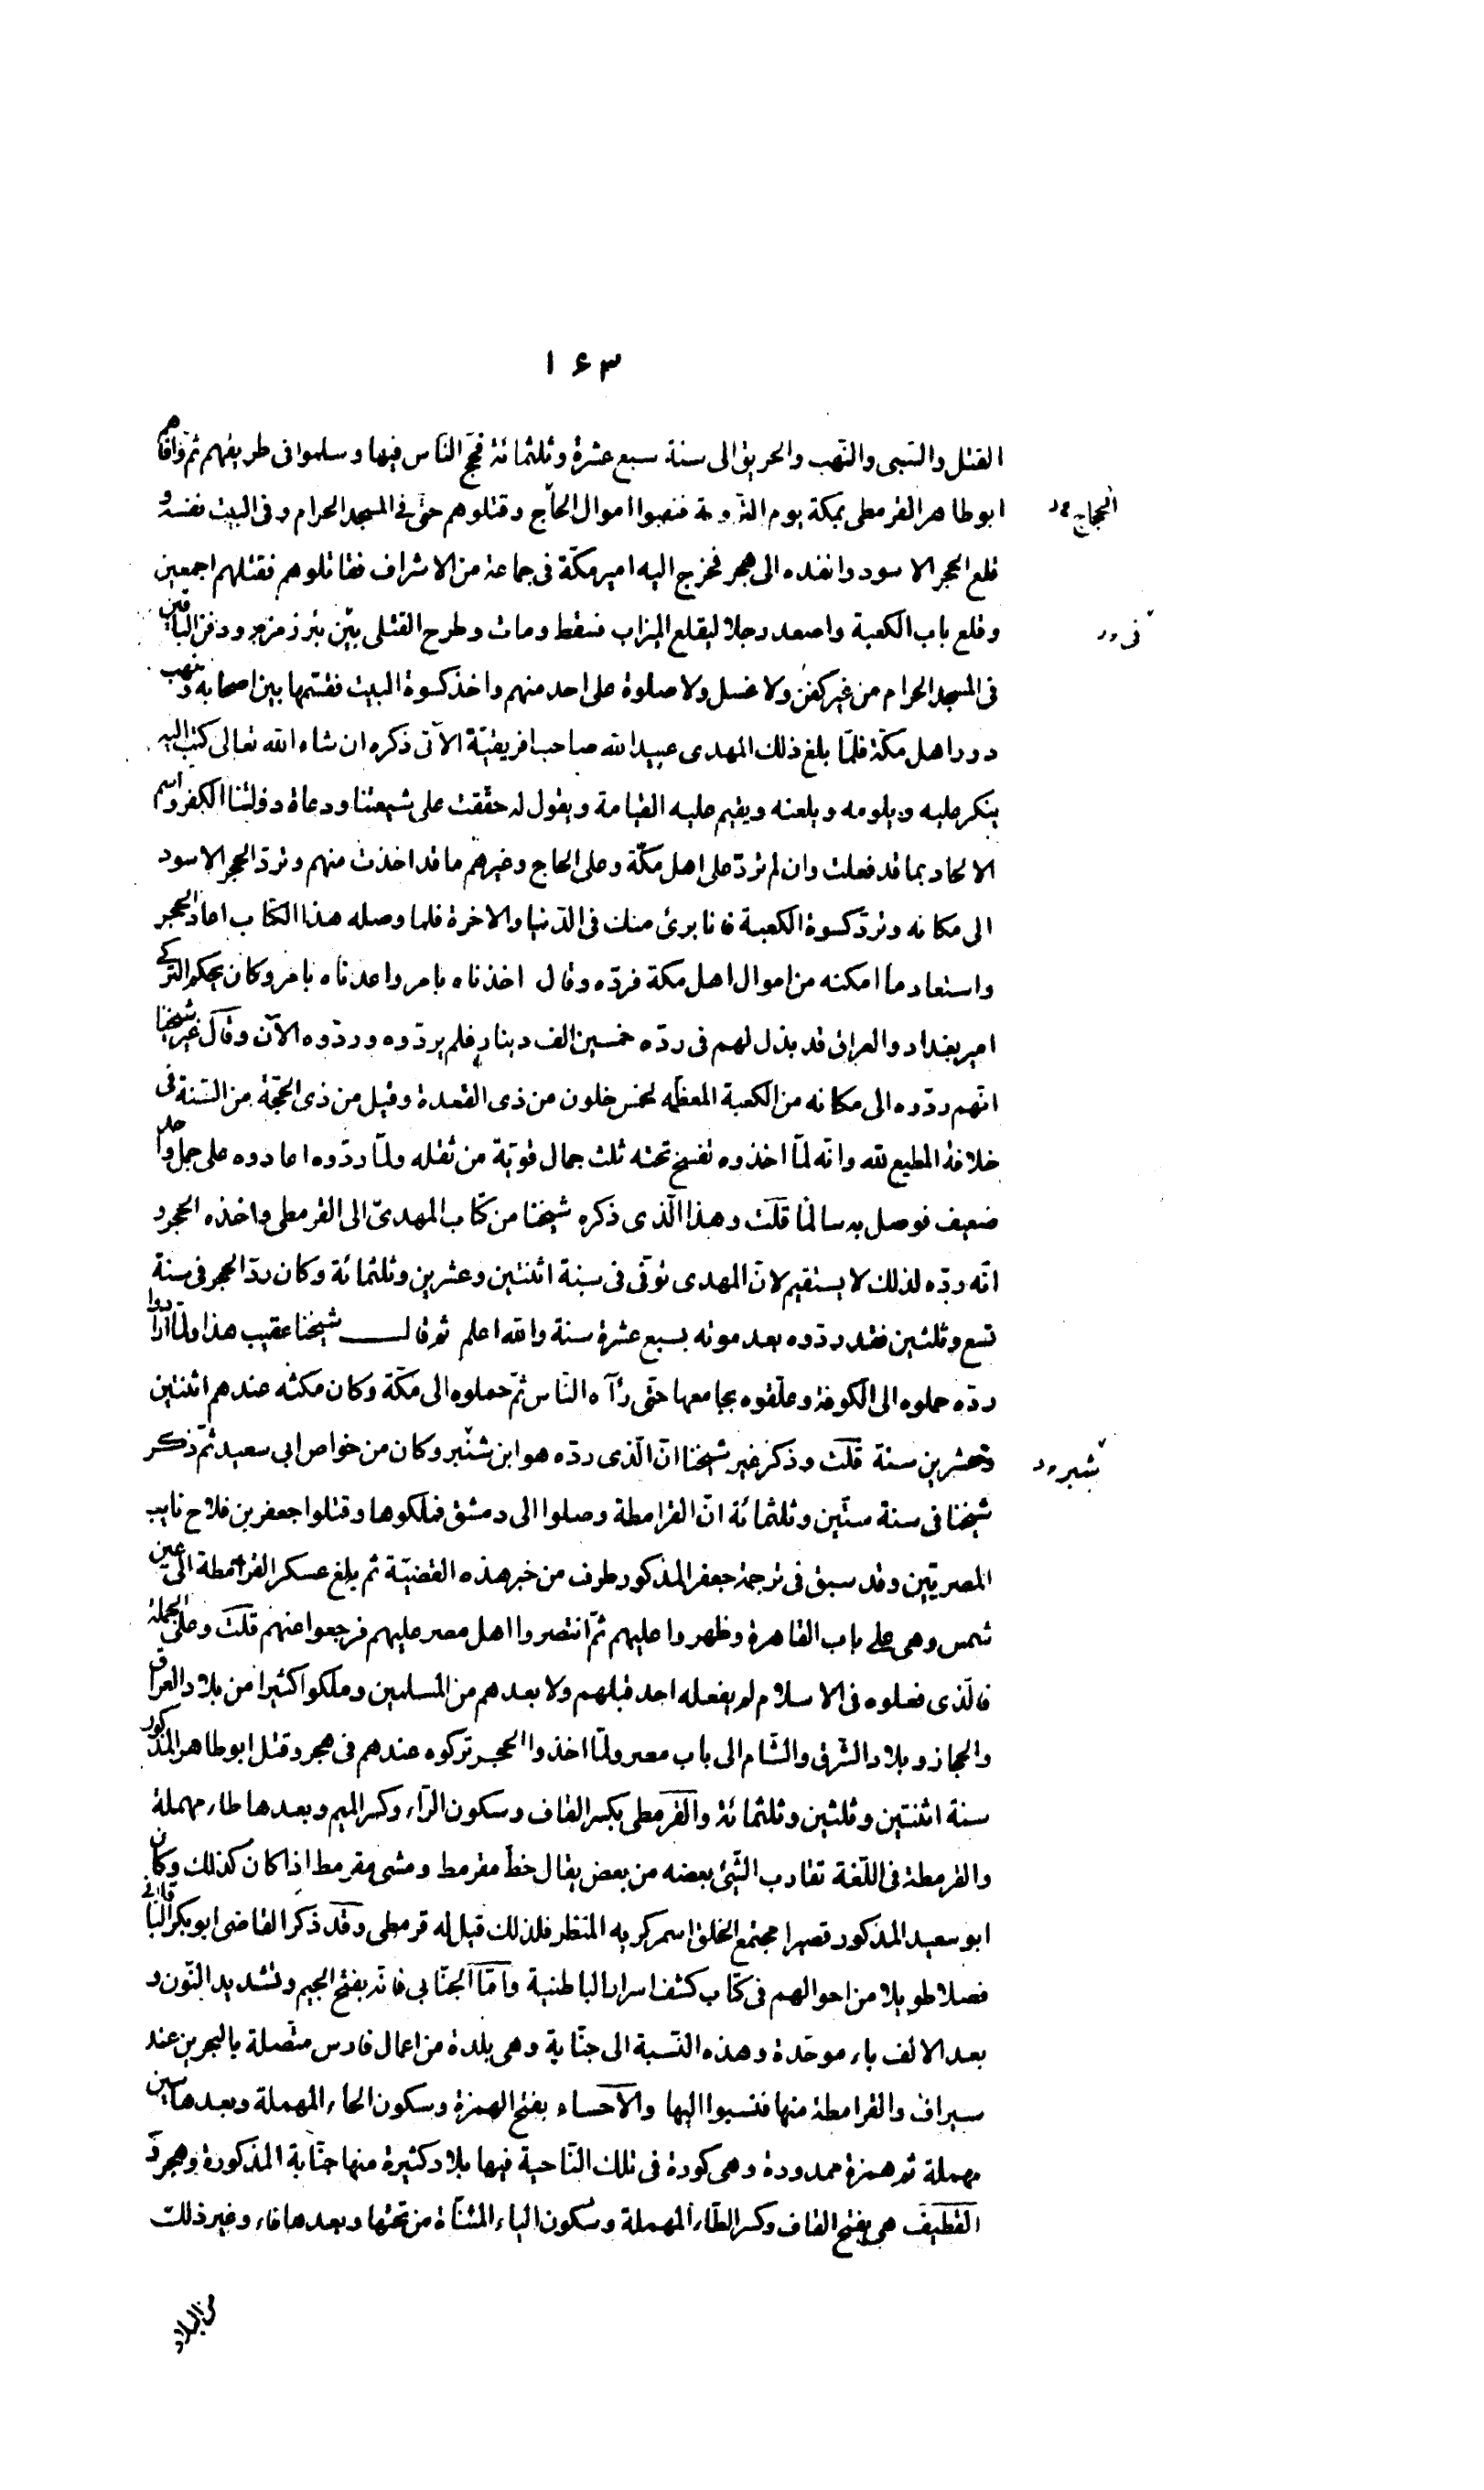 ١٦٣
القتل والسبى والنهب والحريق الى سنة سبع عشرة وثلثمائة فحج الناس فيها وسلموا فى طريقهم ثم وافاهم
ابو طاهر القرمطى بمكة يوم التروية فنهبوا اموال الحاج وقتلوهم حتى فى المسجد الحرام وفى البيت نفسه و
الحجاج
قلع الحجر الاسود وانفده الى هجر فخرج اليه امير مكة فى جماعة من الاشراف فقاتلوهم فقتلهم اجمعين
وقلع باب الكعبة واصعد رجلا ليقلع الميزاب فسقط ومات وطرح القتلى بيّن بئر زمزم ودفن الباقين
فى
فى المسجد الحرام من غير كفن ولا غسل ولا صلوة على احد منهم واخذ كسوة البيت فقسّمها بين اصحابه ونهب
دور اهل مكة فلمّا بلغ ذلك المهدى عبيد الله صاحب افريقيّة الآتى ذكره ان شاء الله تعالى كتب اليه
ينكر عليه ويلومه ويلعنه ويقيم عليه القيامة ويقول له حققت على شيعتنا ودعاة دولتنا الكفر واسم
الالحاد بما قد فعلت وان لم تردّ على اهل مكّة وعلى الحاج وغيرهم ما قد اخذت منهم وتردّ الحجر الاسود
الى مكانه وتردّ كسوة الكعبة فانا برئ منك فى الدّنيا والاخرة فلما وصله هذا الكتاب اعاد الحجر
واستعاد ما امكنه من اموال اهل مكة فردّه وقال اخذناه بامر واعدناه بامر وكان بجكم التركى
امير بغداد والعراق قد بذل لهم فى ردّه خمسين الف دينار فلم يردّوه وردّوه الآن وقال غير شيخنا
انّهم ردّوه الى مكانه من الكعبة المعظّمه لخمس خلون من ذى القعدة وقيل من ذى الحجّة من السّنة فى
خلافة المطيع لله وانّه لمّا اخذوه تفسخ تحته ثلث جمال قويّة من ثقله ولمّا ردّوه اعادوه على جمل واحد
ضعيف فوصل به سالمًا قلت وهذا الّذى ذكره شيخنا من كتاب المهدىّ الى القرمطى واخذه الحجر و
انّه ردّه لذلك لا يستقيم لانّ المهدى توفّى فى سنة اثنتين وعشرين وثلثمائة وكان ردّ الحجر فى سنة
تسع وثلثين فقد ردّوه بعد موته بسبع عشرة سنة والله اعلم ثم قال شيخنا عقيب هذا ولمّا ارادوا
ردّه حملوه الى الكوفة وعلّقوه بجامعها حتّى رآه النّاس ثمّ حملوه الى مكّة وكان مكثه عندهم اثنتين
وعشرين سنة قلت وذكر غير شيخنا انّ الّذى ردّه هو ابن شنبر وكان من خواص ابى سعيد ثمّ ذكر
شيخنا فى سنة ستّين وثلثمائة انّ القرامطة وصلوا الى دمشق فملكوها وقتلوا جعفر بن فلاح نايب
المصريّين وقد سبق فى ترجمة جعفر المذكور طرف من خبر هذه القضيّة ثم بلغ عسكر القرامطة الى عين
شمس وهى على باب القاهرة وظهروا عليهم ثمّ انتصروا اهل مصر عليهم فرجعوا عنهم قلت وعلى الجملة
فالّذى فعلوه فى الاسلام لم يفعله احد قبلهم ولا بعدهم من المسلمين وملكوا كثيرا من بلاد العراق
والحجاز وبلاد الشّرق والشّام الى باب مصر ولمّا اخذوا الحجر تركوه عندهم فى هجر وقتل ابو طاهر المذكور
سنة اثنتين وثلثين وثلثمائة والقرمطى بكسر القاف وسكون الرّاء وكسر الميم وبعدها طاء مهملة
والقرمطة فى اللّغة تقارب الشّئ بعضه من بعض يقال خطّ مقرمط ومشى مقرمط اذا كان كذلك وكان
ابو سعيد المذكور قصيرا مجتمع الخلق اسمر كريه المنظر فلذلك قيل له قرمطى وقد ذكر القاضى ابو بكر الباقلانى
فصلا طويلا من احوالهم فى كتاب كشف اسرار الباطنية وامّا الجنّابى فانّه بفتح الجيم وتشديد النّون و
بعد الالف باء موحّدة وهذه النّسبة الى جنّابة وهى بلدة من اعمال فارس متّصلة بالبحرين عند
سيراف والقرامطة منها فنسبوا اليها والاحساء بفتح الهمزة وسكون الحاء المهملة وبعدها سين
مهملة ثم همزة ممدودة وهى كورة فى تلك النّاحية فيها بلاد كثيرة منها جنّابة المذكورة وهجر و
القطيف هى بفتح القاف وكسر الطّاء المهملة وسكون الياء المثنّاة من تحتها وبعدها فاء وغير ذلك
من البلاد